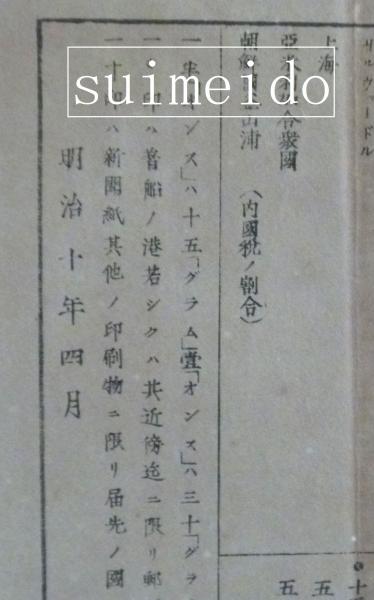 サルヴァードル
上海
亞米利加合衆國
朝鮮國釜山浦 (內國稅ノ割合)
一半オンス」ハ十五「グラム」壹「オンス」ハ三十「グラ
一 印ハ着船ノ港若シクハ其近傍迄ニ限リ郵
一十印ハ新聞紙其他ノ印刷物ニ限リ届先ノ國
明治十年四月
十
五
五
suimeido